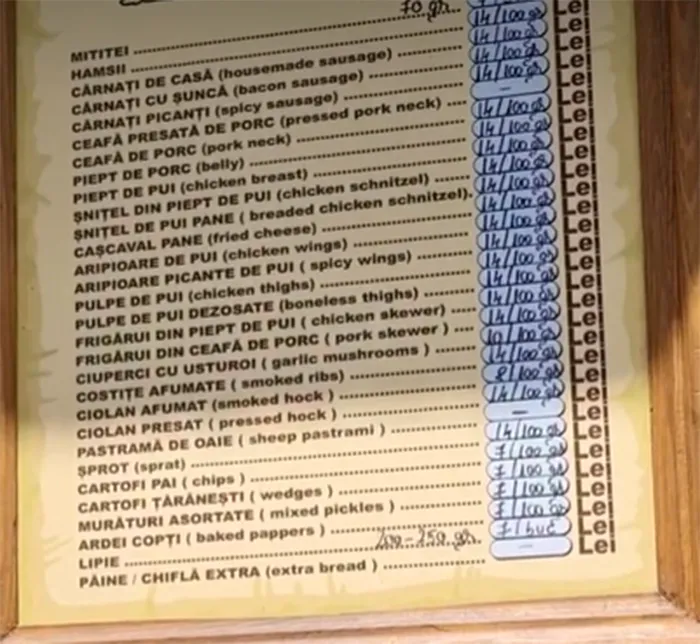 MITITEI 70 gr. Lei
HAMSII 14/100 gr Lei
CÂRNAȚI DE CASĂ (housemade sausage) 14/100 gr Lei
CÂRNAȚI CU ȘUNCĂ (bacon sausage) 14/100 gr Lei
CÂRNAȚI PICANȚI (spicy sausage) 14/100 gr Lei
CEAFĂ PRESATĂ DE PORC (pressed pork neck) — Lei
CEAFĂ DE PORC (pork neck) 14/100 gr Lei
PIEPT DE PORC (belly) 14/100 gr Lei
PIEPT DE PUI (chicken breast) 14/100 gr Lei
ȘNIȚEL DIN PIEPT DE PUI (chicken schnitzel) 14/100 gr Lei
ȘNIȚEL DE PUI PANE ( breaded chicken schnitzel). 14/100 gr Lei
CAȘCAVAL PANE (fried cheese) 14/100 gr Lei
ARIPIOARE DE PUI (chicken wings) 14/100 gr Lei
ARIPIOARE PICANTE DE PUI ( spicy wings) 14/100 gr Lei
PULPE DE PUI (chicken thighs) 14/100 gr Lei
PULPE DE PUI DEZOSATE (boneless thighs) 14/100 gr Lei
FRIGĂRUI DIN PIEPT DE PUI ( chicken skewer) 14/100 gr Lei
FRIGĂRUI DIN CEAFĂ DE PORC ( pork skewer ) 14/100 gr Lei
CIUPERCI CU USTUROI ( garlic mushrooms ) 10/100 gr Lei
COSTIȚE AFUMATE ( smoked ribs) 14/100 gr Lei
CIOLAN AFUMAT (smoked hock ) 8/100 gr Lei
CIOLAN PRESAT ( pressed hock ) 14/100 gr Lei
PASTRAMĂ DE OAIE ( sheep pastrami ) — Lei
ȘPROT (sprat) 14/100 gr Lei
CARTOFI PAI ( chips ) 7/100 gr Lei
CARTOFI ȚĂRĂNEȘTI ( wedges ) 7/100 gr Lei
MURĂTURI ASORTATE ( mixed pickles ) 7/100 gr Lei
ARDEI COPȚI ( baked pappers ) 7/100 gr Lei
LIPIE 200-250 gr. 7/buc Lei
PÂINE / CHIFLĂ EXTRA (extra bread ) — Lei